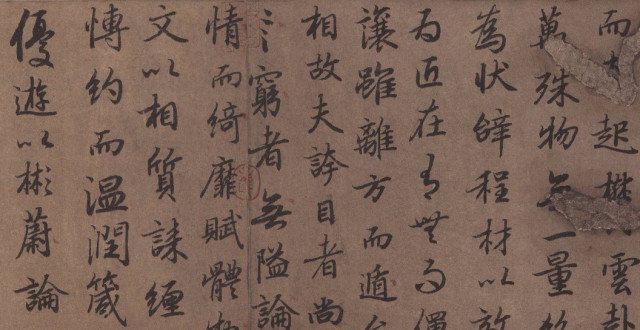 而起雲
萬殊物無一量
為狀辞程材以效
為匠在有無而僶
讓雖離方而遁
相故夫誇目者尚
窮者無隘論
情而綺靡賦體物
文以相質誄纏
博約而温潤箴
優遊以彬蔚論